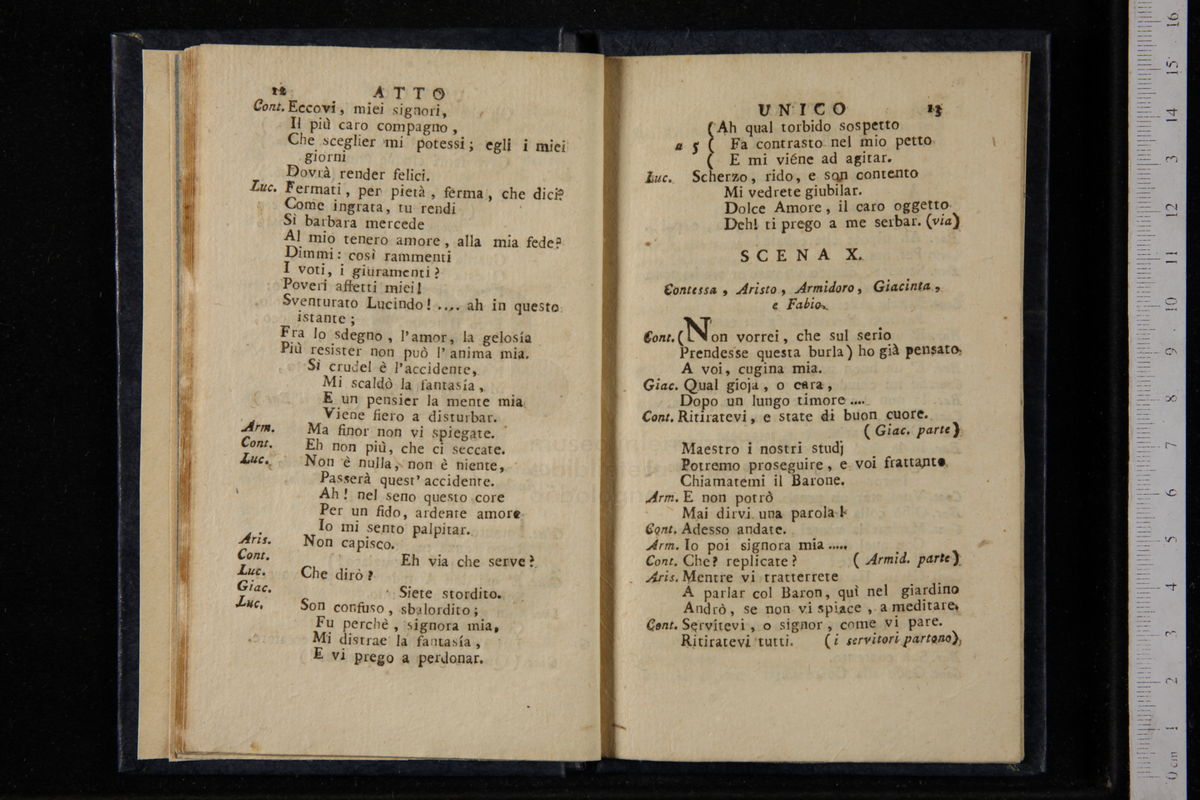 12 ATTO
Cont. Eccovi, miei signori,
Il più caro compagno,
Che sceglier mi potessi; egli i miei
giorni
Dovrà render felici.
Luc. Fermati, per pietà, ferma, che dici?
Come ingrata, tu rendi
Sì barbara mercede
Al mio tenero amore, alla mia fede?
Dimmi: così rammenti
I voti, i giuramenti?
Poveri affetti miei!
Sventurato Lucindo! .... ah in questo
istante;
Fra lo sdegno, l'amor, la gelosía
Più resister non può l'anima mia.
Sì crudel è l'accidente,
Mi scaldò la fantasía,
E un pensier la mente mia
Viene fiero a disturbar.
Arm. Ma finor non vi spiegate.
Cont. Eh non più, che ci seccate.
Luc. Non è nulla, non è niente,
Passerà quest' accidente.
Ah! nel seno questo core
Per un fido, ardente amore
Io mi sento palpitar.
Aris. Non capisco.
Cont. Eh via che serve?
Luc. Che dirò?
Giac. Siete stordito.
Luc. Son confuso, sbalordito;
Fu perchè, signora mia,
Mi distrae la fantasía,
E vi prego a perdonar.
UNICO 13
(Ah qual torbido sospetto
a 5 ( Fa contrasto nel mio petto
( E mi viéne ad agitar.
Luc. Scherzo, rido, e son contento
Mi vedrete giubilar.
Dolce Amore, il caro oggetto
Deh! ti prego a me serbar. (via)
SCENA X.
Contessa, Aristo, Armidoro, Giacinta,
e Fabio.
Cont. (Non vorrei, che sul serio
Prendesse questa burla) ho già pensato,
A voi, cugina mia.
Giac. Qual gioja, o cara,
Dopo un lungo timore ....
Cont. Ritiratevi, e state di buon cuore.
( Giac. parte )
Maestro i nostri studj
Potremo proseguire, e voi frattanto
Chiamatemi il Barone.
Arm. E non potrò
Mai dirvi una parola!
Cont. Adesso andate.
Arm. Io poi signora mia .....
Cont. Che? replicate? ( Armid. parte )
Aris. Mentre vi tratterrete
A parlar col Baron, quì nel giardino
Andrò, se non vi spiace, a meditare.
Cont. Servitevi, o signor, come vi pare.
Ritiratevi tutti. (i servitori partono)
0 cm 1 2 3 4 5 6 7 8 9 10 11 12 13 14 15 16